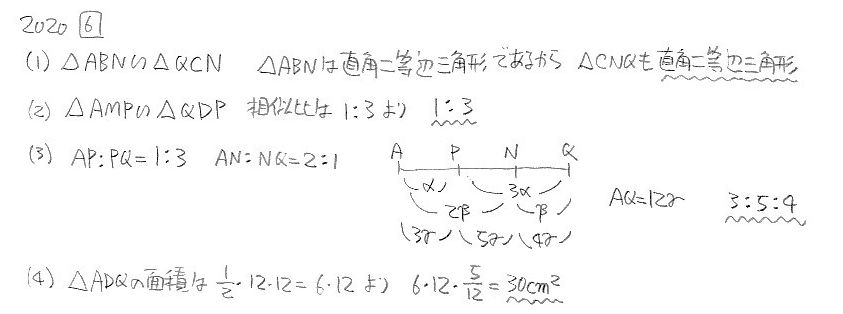 2020 6
(1) △ABN∽△QCN △ABNは直角二等辺三角形であるから △CNQも直角二等辺三角形
(2) △AMP∽△QDP 相似比は 1:3 より 1:3
(3) AP:PQ=1:3 AN:NQ=2:1
A P N Q
α 3α
2β β
3γ 5γ 4γ
AQ=12γ 3:5:4
(4) △ADQの面積は 1/2・12・12=6・12 より 6・12・5/12=30cm²